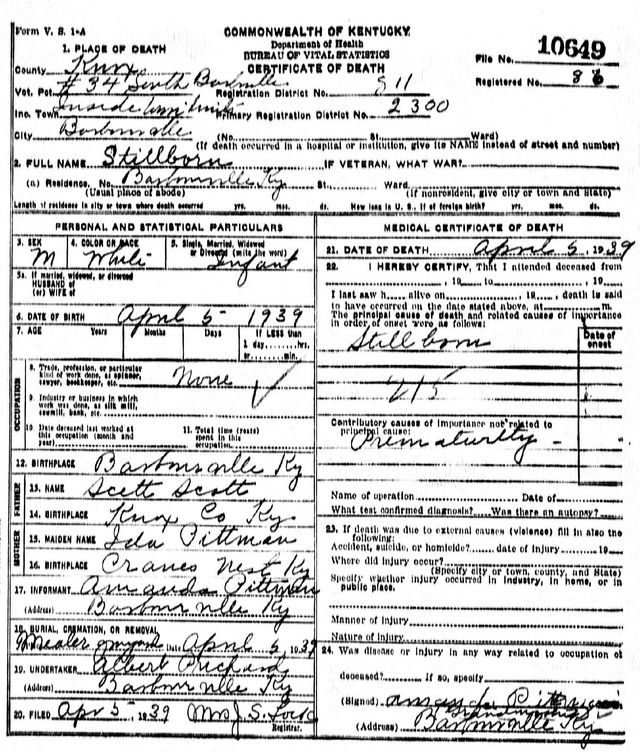 Form V. S. 1-A
COMMONWEALTH OF KENTUCKY
Department of Health
BUREAU OF VITAL STATISTICS
CERTIFICATE OF DEATH
File No. 10649
Registered No. 86
1. PLACE OF DEATH
County Knox
Vot. Pct. # 34 South Barbourville
Registration District No. 911
Inc. Town Inside
Primary Registration District No. 2300
City Barbourville (No. St. Ward)
(If death occurred in a hospital or institution, give its NAME instead of street and number)
2. FULL NAME Stillborn IF VETERAN, WHAT WAR?
(a) Residence. No. Barbourville Ky St. Ward
(Usual place of abode) (If nonresident, give city or town and State)
Length of residence in city or town where death occurred yrs. mos. ds. How long in U. S. if of foreign birth? yrs. mos. ds.
PERSONAL AND STATISTICAL PARTICULARS
3. SEX 4. COLOR OR RACE 5. Single, Married, Widowed or Divorced (write the word)
M White Infant
5a. If married, widowed, or divorced
HUSBAND of
(or) WIFE of
6. DATE OF BIRTH April 5 - 1939
7. AGE Years Months Days If LESS than
1 day, hrs.
or min.
OCCUPATION
8. Trade, profession, or particular
kind of work done, as spinner,
sawyer, bookkeeper, etc. None
9. Industry or business in which
work was done, as silk mill,
sawmill, bank, etc.
10. Date deceased last worked at
this occupation (month and
year)
11. Total time (years)
spent in this
occupation
12. BIRTHPLACE Barbourville Ky
FATHER
13. NAME Scott Scott
14. BIRTHPLACE Knox Co Ky.
MOTHER
15. MAIDEN NAME Ida Pittman
16. BIRTHPLACE Cranes Nest Ky
17. INFORMANT Amanda Pittman
(Address) Barbourville Ky
18. BURIAL, CREMATION, OR REMOVAL
Date April 5, 1939
19. UNDERTAKER Albert Prichard
(Address) Barbourville Ky
20. FILED Apr 5 - 1939 Mrs J. S. Lock
Registrar.
MEDICAL CERTIFICATE OF DEATH
21. DATE OF DEATH April 5, 1939
22. I HEREBY CERTIFY, That I attended deceased from
, 19 to , 19
I last saw h alive on , 19 , death is said
to have occurred on the date stated above, at m.
The principal cause of death and related causes of importance
in order of onset were as follows:
Date of
onset
Stillborn
215
Contributory causes of importance not related to
principal cause:
Prematurity -
Name of operation Date of
What test confirmed diagnosis? Was there an autopsy?
23. If death was due to external causes (violence) fill in also the
following:
Accident, suicide, or homicide? date of injury 19
Where did injury occur?
(Specify city or town, county, and State)
Specify whether injury occurred in industry, in home, or in
public place.
Manner of injury
Nature of injury
24. Was disease or injury in any way related to occupation of
deceased? If so, specify
(Signed) Amanda Pittman
(Address) Barbourville Ky